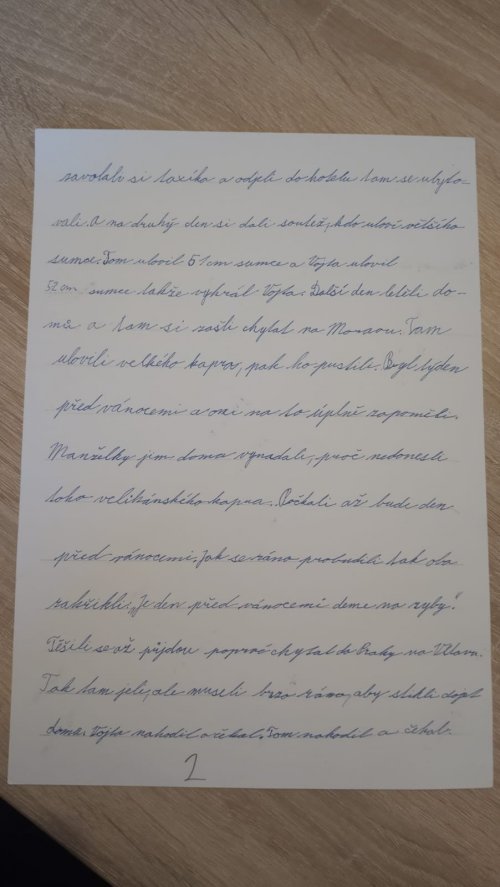 zavolali si taxíka a odjeli do hotelu tam se ubyto-
vali. A na druhý den si dali soutěž, kdo uloví většího
sumce. Tom ulovil 51cm sumce a Vojta ulovil
52cm sumce takže vyhrál Vojta. Další den letěli do-
mů a tam si zašli chytat na Moravu. Tam
ulovili velkého kapra, pak ho pustili. Byl týden
před vánocemi a oni na to úplně zapoměli.
Manželky jim doma vynadali, proč nedonesli
toho velikánského kapra. Počkali až bude den
před vánocemi. Jak se ráno probudili tak oba
zakřikli: „Je den před vánocemi deme na ryby."
Těšili se až půjdou poprvé chytat do Prahy na Vltavu.
Tak tam jeli, ale museli brzo ráno, aby stihli dojet
domů. Vojta nahodil a čekal. Tom nahodil a čekal.
2